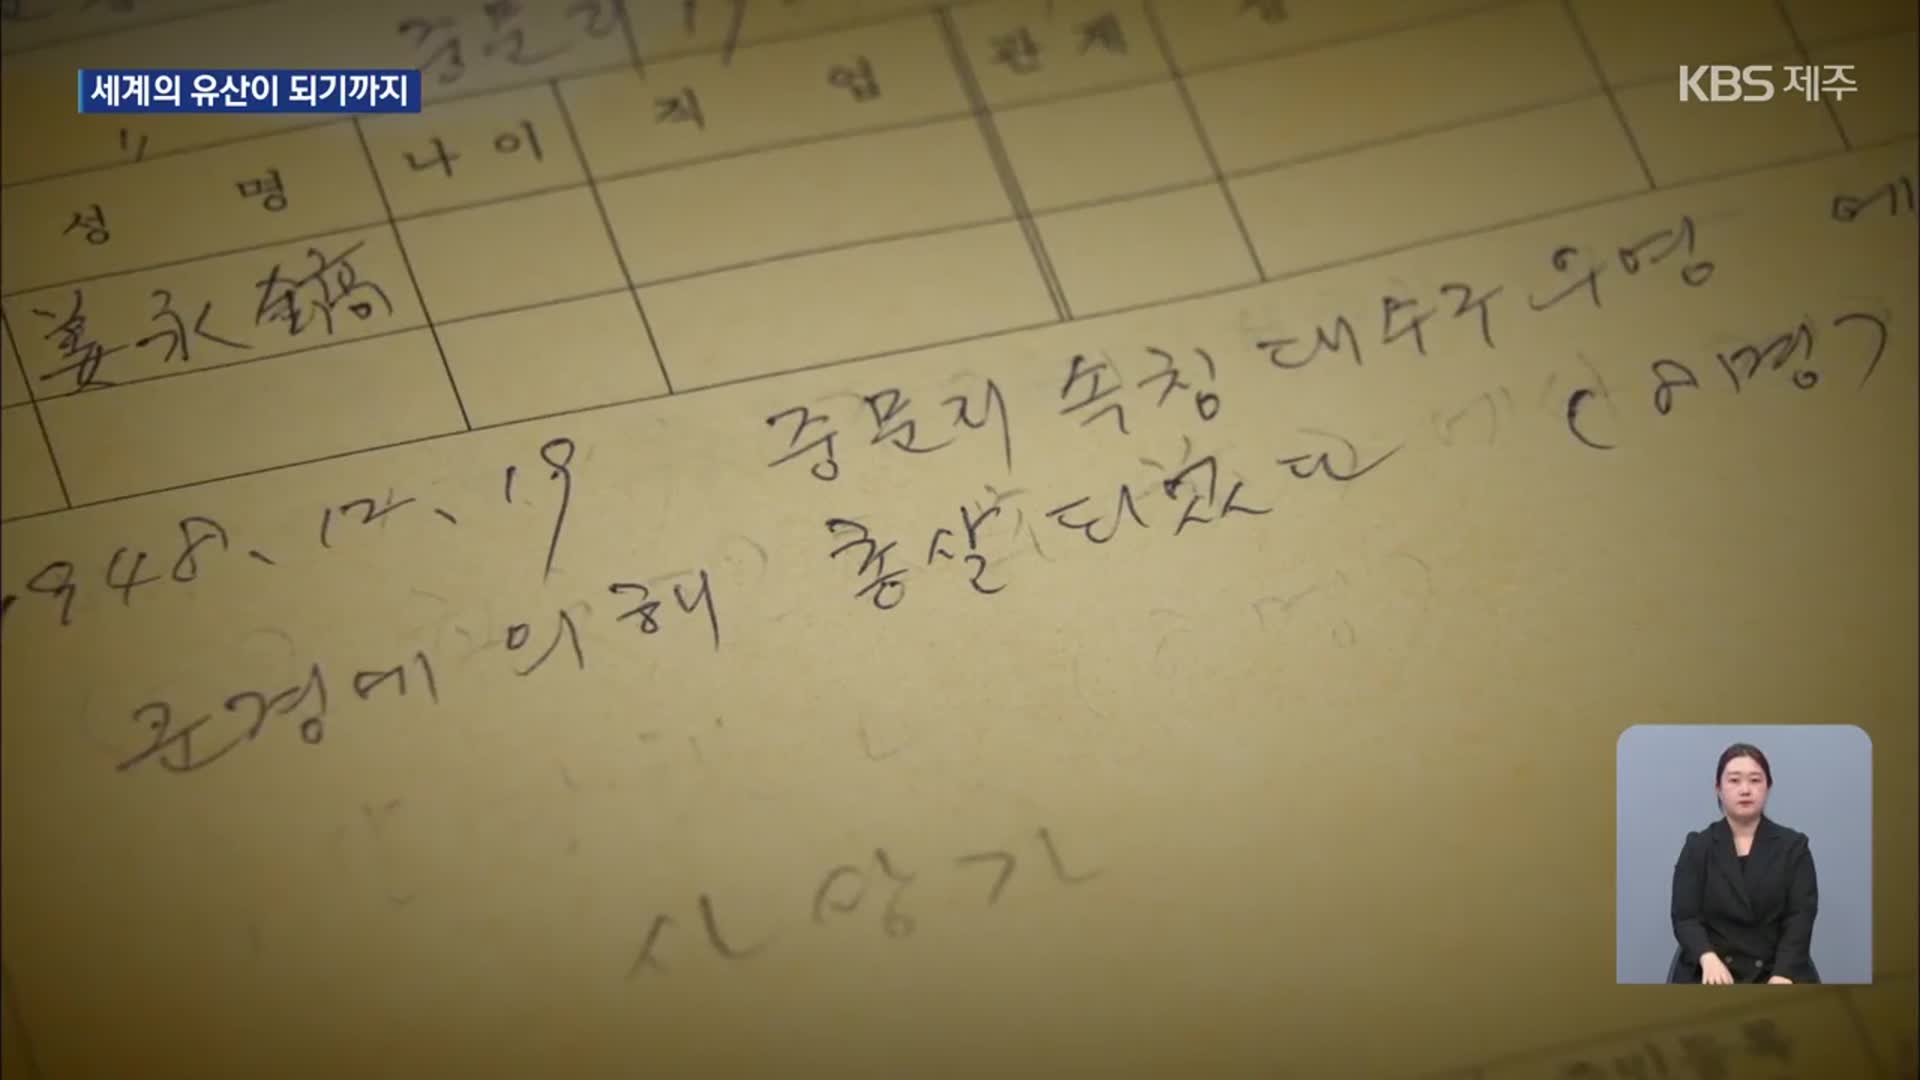 세계의 유산이 되기까지
KBS 제주
중문리
성 명 나 이 직 업 관 계
姜永鎬
1948. 12. 19 중문리 속칭 대수구우영 에
군경에 의해 총살되었다 (8명
사망가